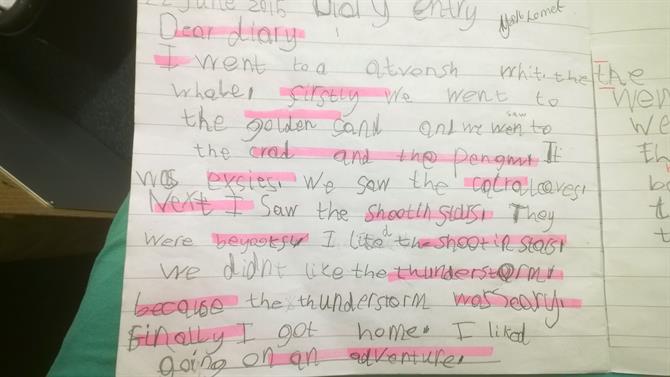 22 June 2015 Diary Entry
Dear diary
I went to a atvensh whit the the
whale, firstly we went to
saw
the golden sand and we wen to
the crad and the Penguin It
was exsies. We saw the
Next I saw the shootin stars. They
were I liked the shootin stars.
we didnt like the thunderstorm.
because the thunderstorm was scary.
Finally I got home. I liked
going on an adventure.
the
wen
we